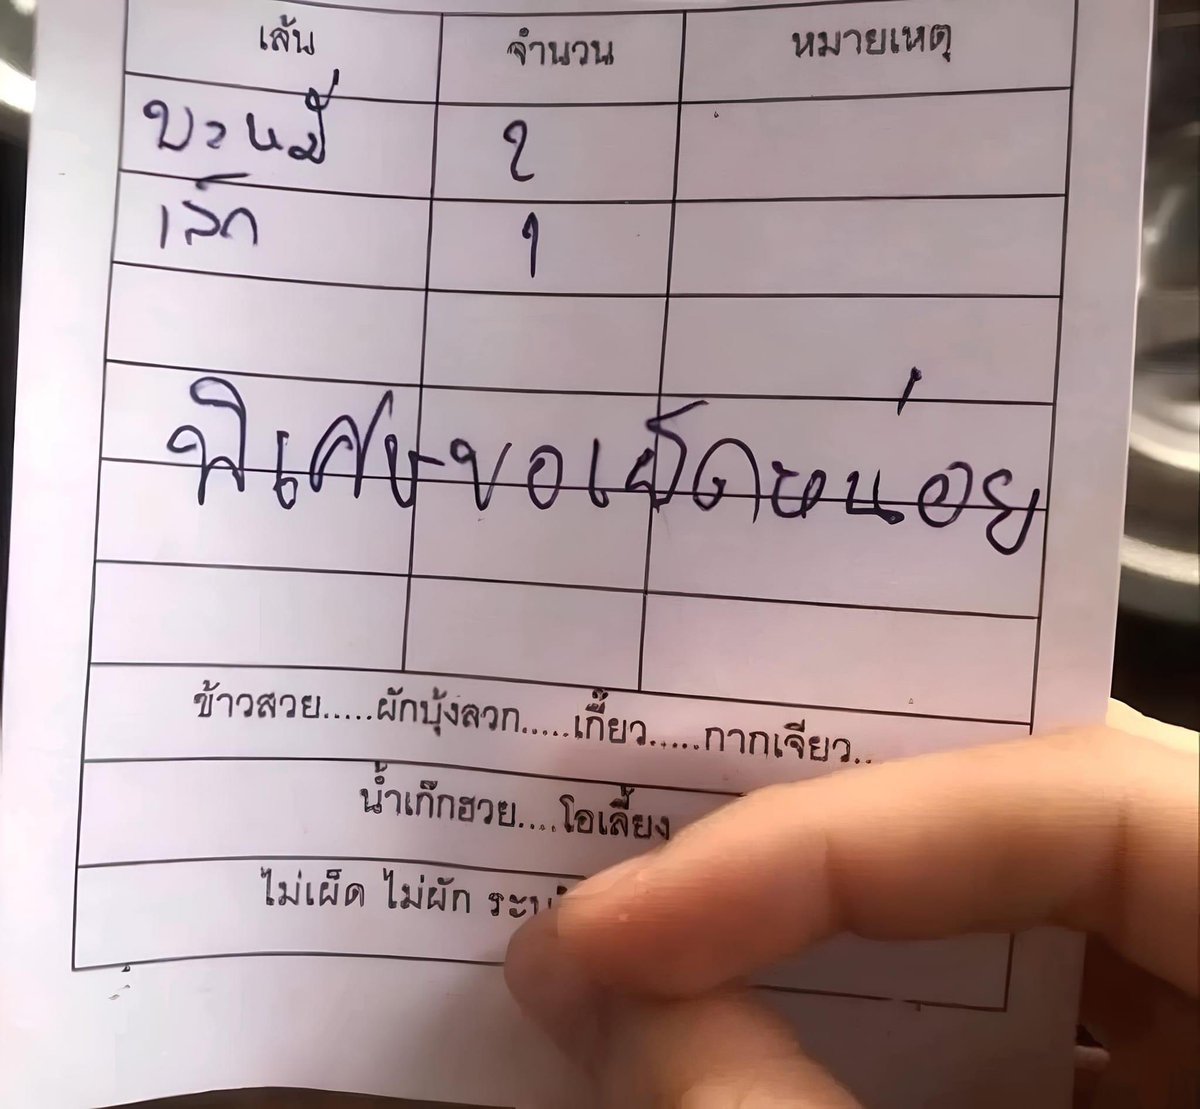 เส้น จำนวน หมายเหตุ
บะหมี่ 2
เล็ก 1
พิเศษขอเผ็ดหน่อย
ข้าวสวย.....ผักบุ้งลวก.....เกี๊ยว.....กากเจียว..
น้ำเก๊กฮวย....โอเลี้ยง
ไม่เผ็ด ไม่ผัก ระบุ